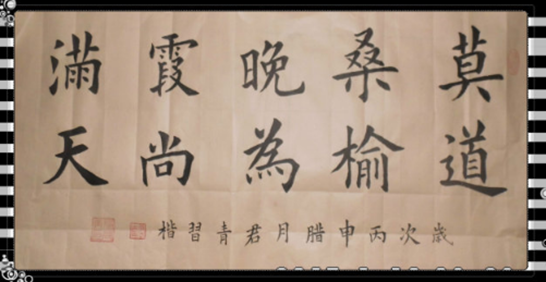 莫道桑榆晚為霞尚滿天
歲次丙申腊月君青習楷